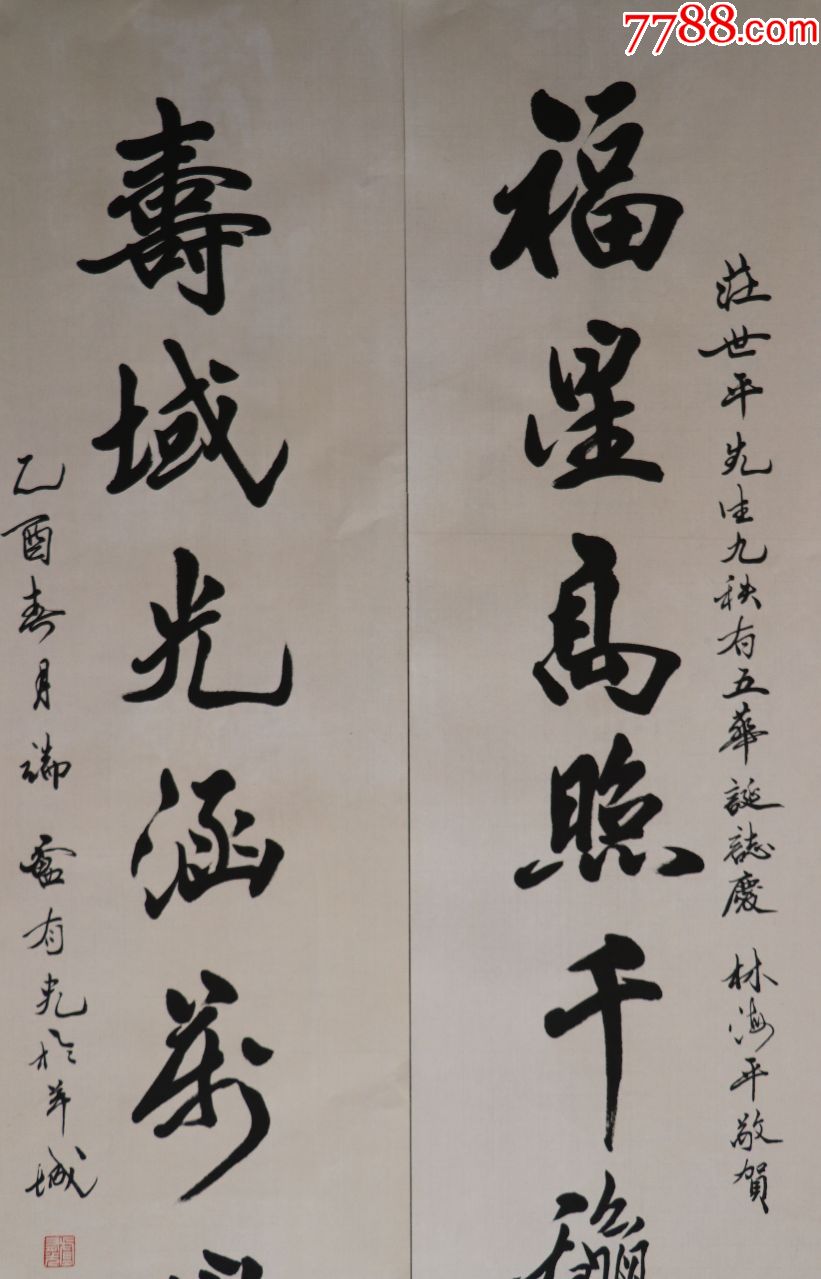 7788.com
莊世平先生九秩有五華誕誌慶 林海平敬賀
福星高照千
壽域光涵萬
乙酉春月端 盧有光於羊城